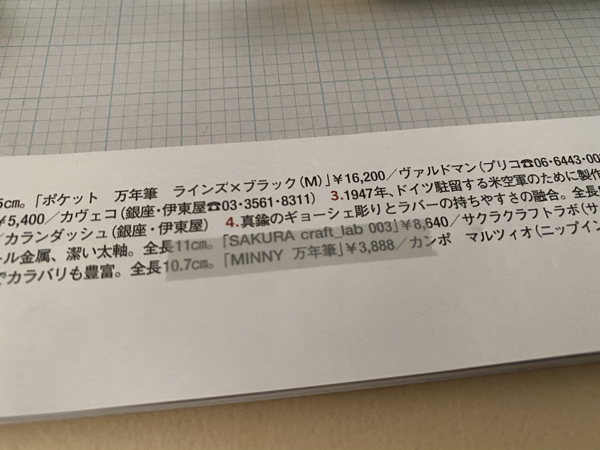 5cm。「ポケット 万年筆 ラインズ×ブラック(M)」¥16,200/ヴァルドマン(プリコ☎06・6443・00
¥5,400/カヴェコ(銀座・伊東屋☎03・3561・8311) 3.1947年、ドイツ駐留する米空軍のために製作
/カランダッシュ(銀座・伊東屋) 4.真鍮のギョーシェ彫りとラバーの持ちやすさの融合。全長
ル金属、潔い太軸。全長11cm。「SAKURA craft_lab 003」¥8,640/サクラクラフトラボ(サ
でカラバリも豊富。全長10.7cm。「MINNY 万年筆」¥3,888/カンポ マルツィオ(ニップイン